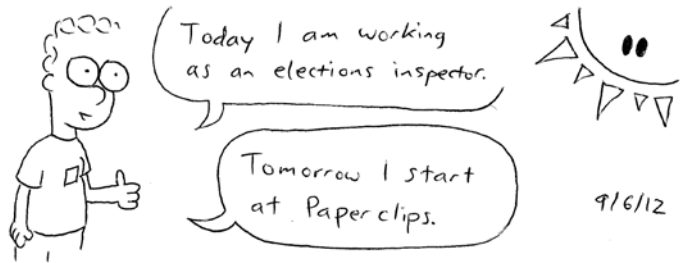 Today I am working
as an elections inspector.
Tomorrow I start
at Paperclips.
9/6/12